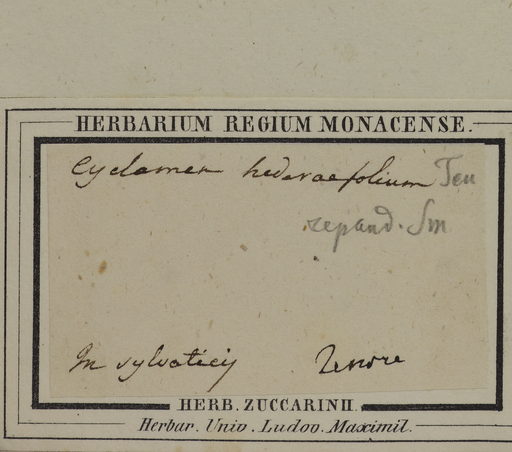 HERBARIUM REGIUM MONACENSE.
Cyclamen hederaefolium Ten
repand. Sm
In sylvaticis Tenore
HERB. ZUCCARINII.
Herbar. Univ. Ludov. Maximil.